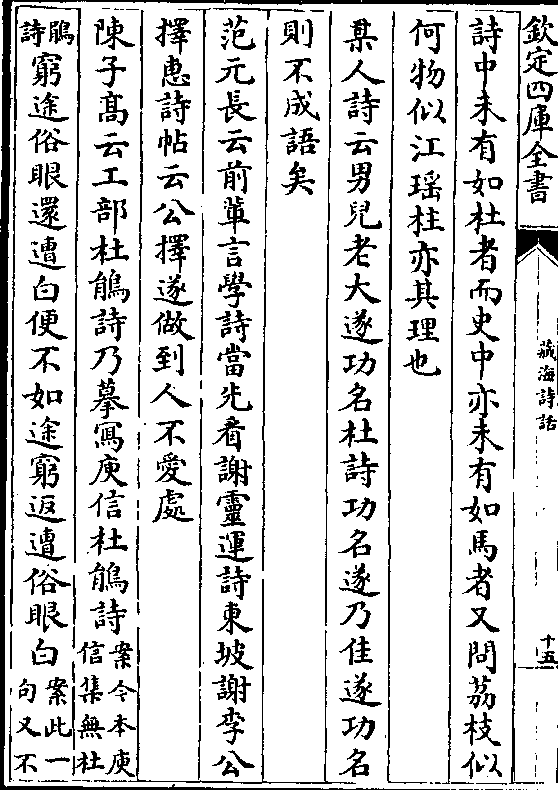 欽定四庫全書
藏海詩話
十五
詩中未有如杜者而史中亦未有如馬者又問荔枝似
何物似江瑤柱亦其理也
某人詩云男兒老大遂功名杜詩功名遂乃佳遂功名
則不成語矣
范元長云前輩言學詩當先看謝靈運詩東坡謝李公
擇惠詩帖云公擇遂做到人不愛處
陳子髙云工部杜鵑詩乃摹寫庾信杜鵑詩案今本庾信集無杜
鵑詩窮途俗眼還遭白便不如途窮返遭俗眼白案此一句又不